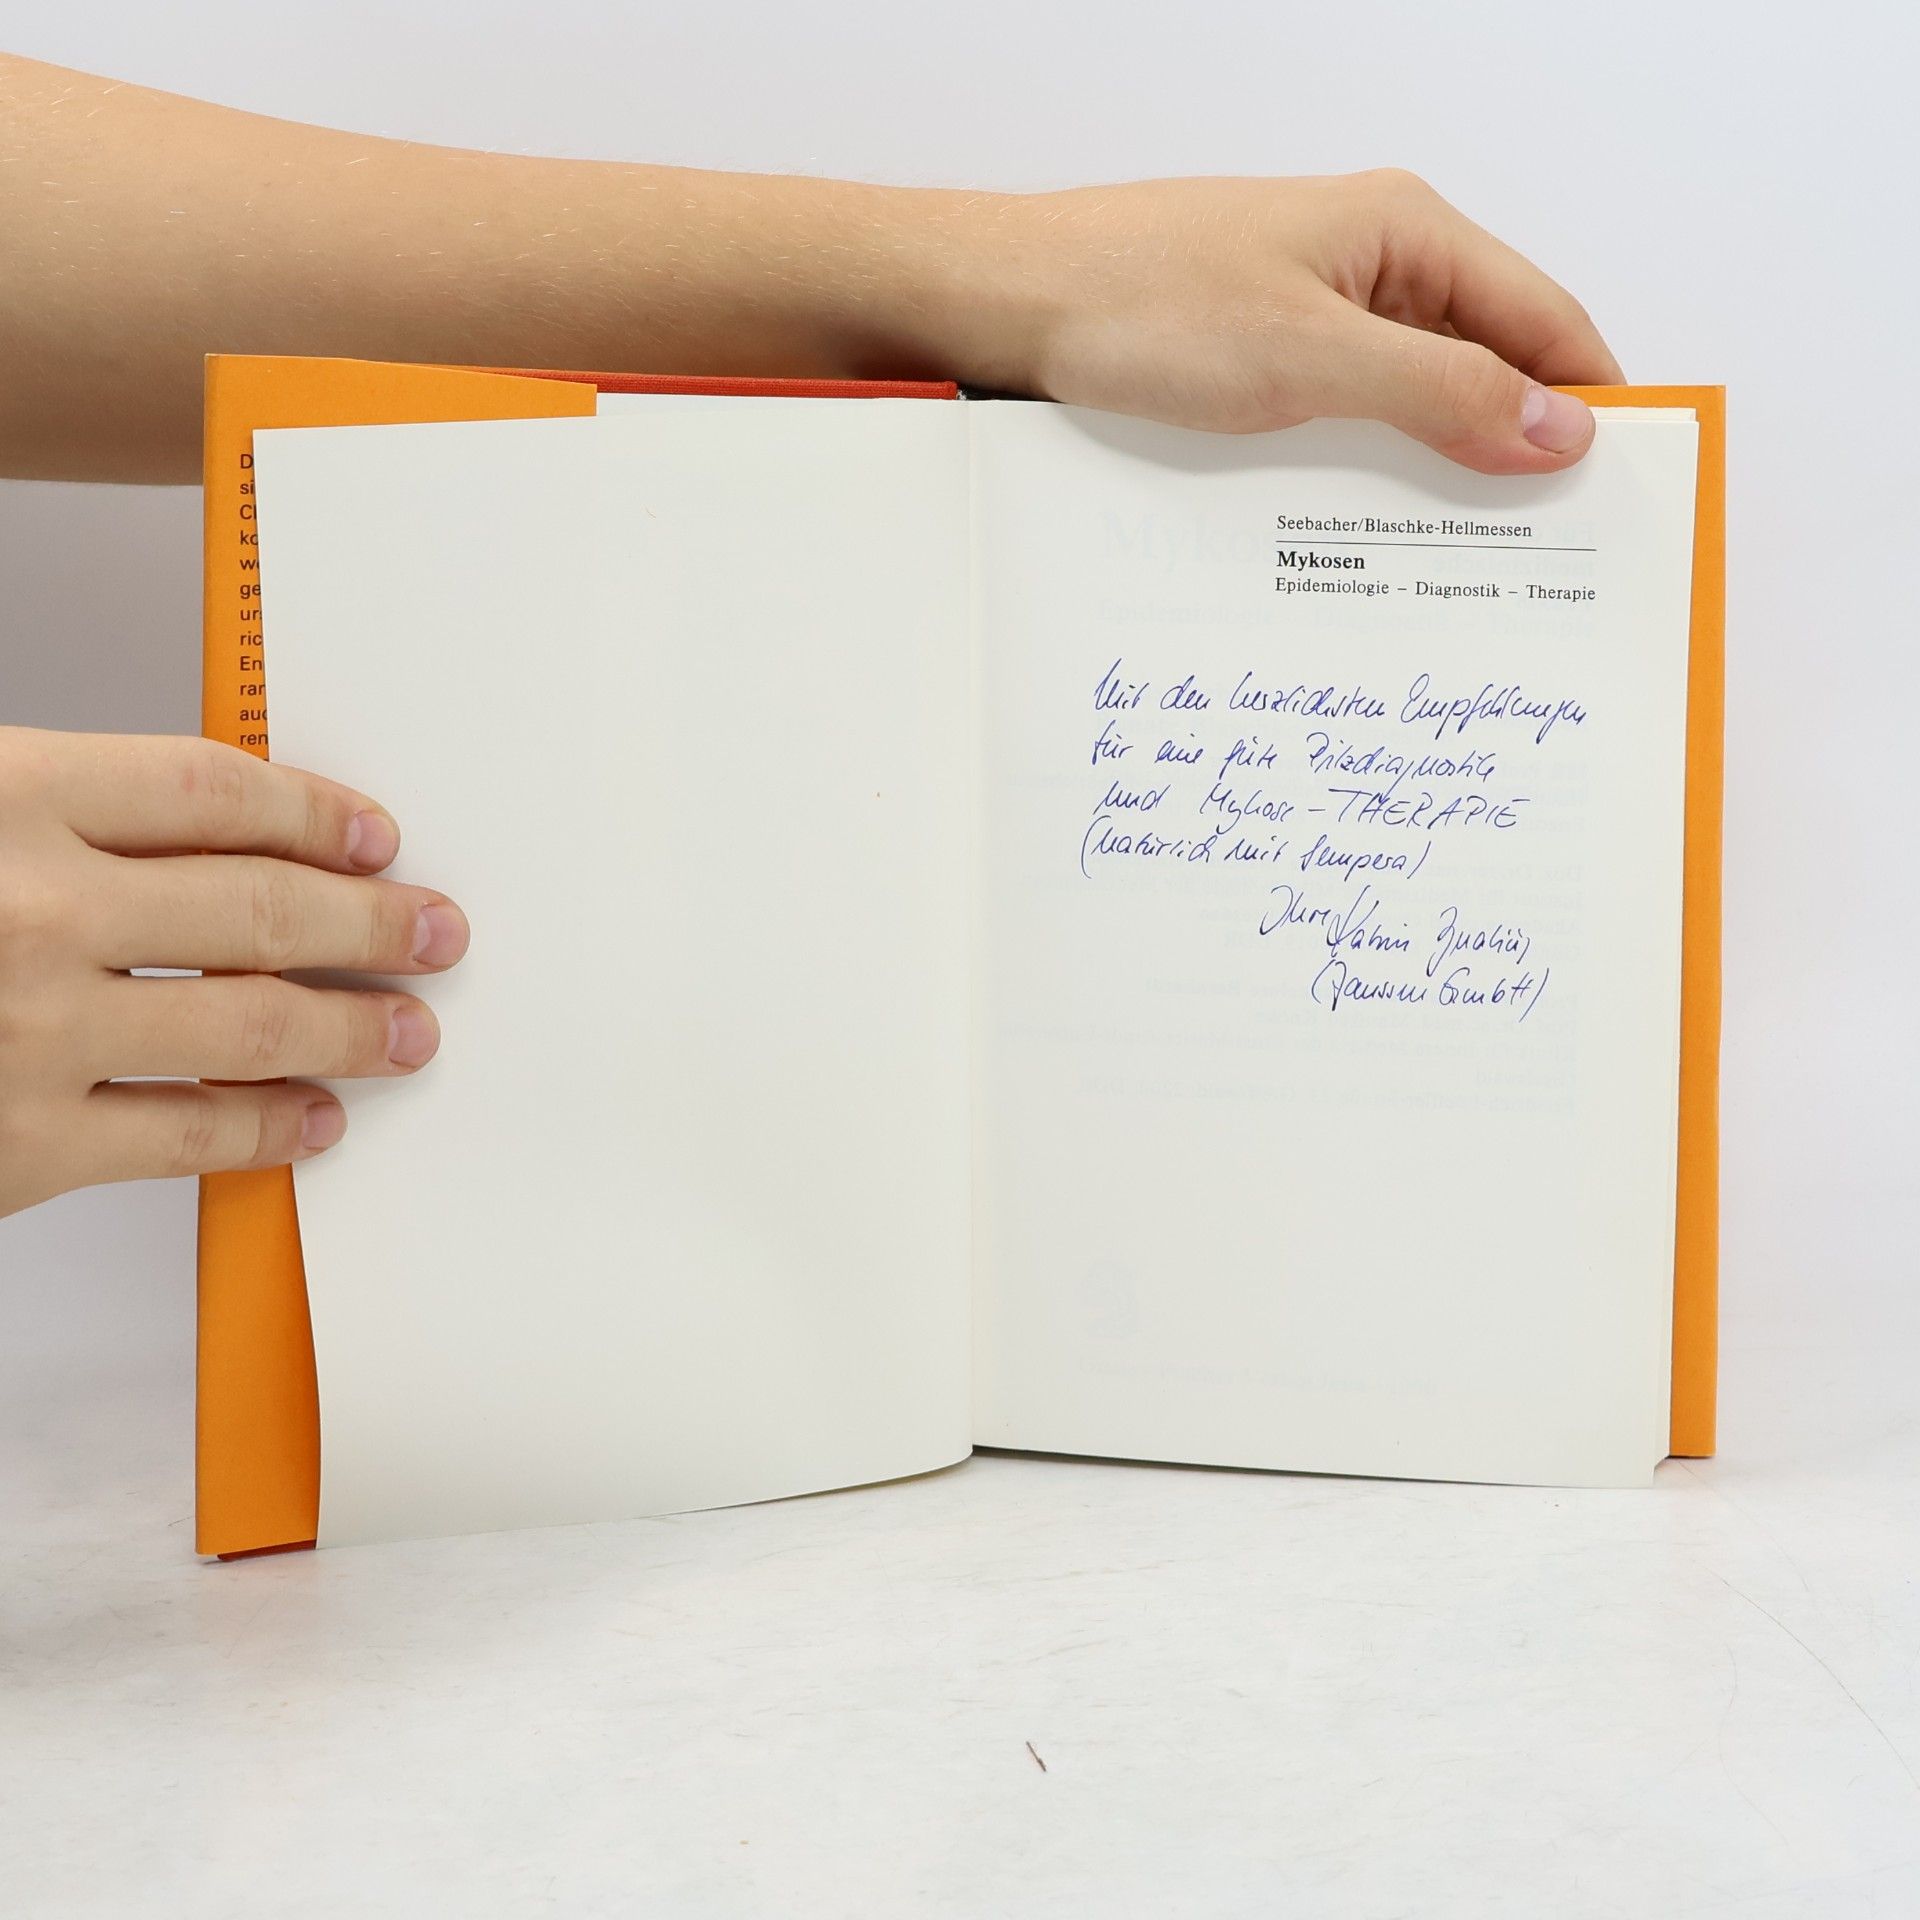 D
si
Cl
ko
we
ge
urs
ric
En
ran
auc
ren
Seebacher/Blaschke-Hellmessen
Mykosen
Epidemiologie – Diagnostik – Therapie
Mit den herzlichsten Empfehlungen
für eine gute Pilzdiagnostik
und Mykose-THERAPIE
(natürlich mit Sempera)
Ihre Katrin
(Janssen GmbH)